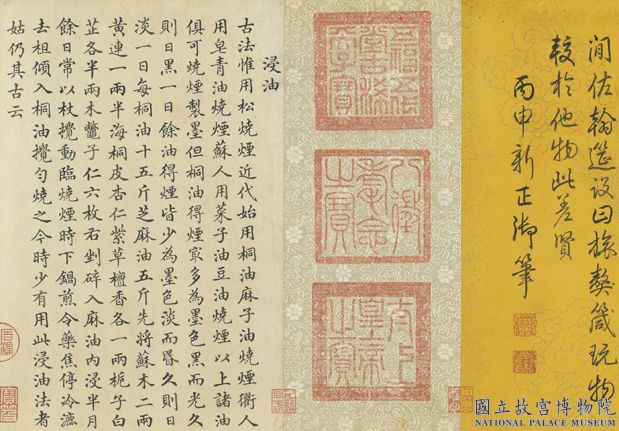 澗佐翰筵設曰旅獒箴玩物
較於他物此差賢
丙申新正御筆
五福五代堂古稀天子寶
八徵耄念之寶
太上皇帝之寶
浸油
古法惟用松燒煙近代始用桐油麻子油燒煙衢人
用皂青油燒煙蘇人用菜子油豆油燒煙以上諸油
俱可燒煙製墨但桐油得煙最多為墨色黑而光久
則日黑一日餘油得煙皆少為墨色淡而昏久則日
淡一日每桐油十五斤芝麻油五斤先將蘇木二兩
黃連一兩半海桐皮杏仁紫草檀香各一兩梔子白
芷各半兩木鼈子仁六枚右剉碎入麻油內浸半月
餘日常以杖攪動臨燒煙時下鍋煎令藥焦停冷漉
去柤傾入桐油攪勻燒之今時少有用此浸油法者
姑仍其古云
國立故宮博物院
NATIONAL PALACE MUSEUM